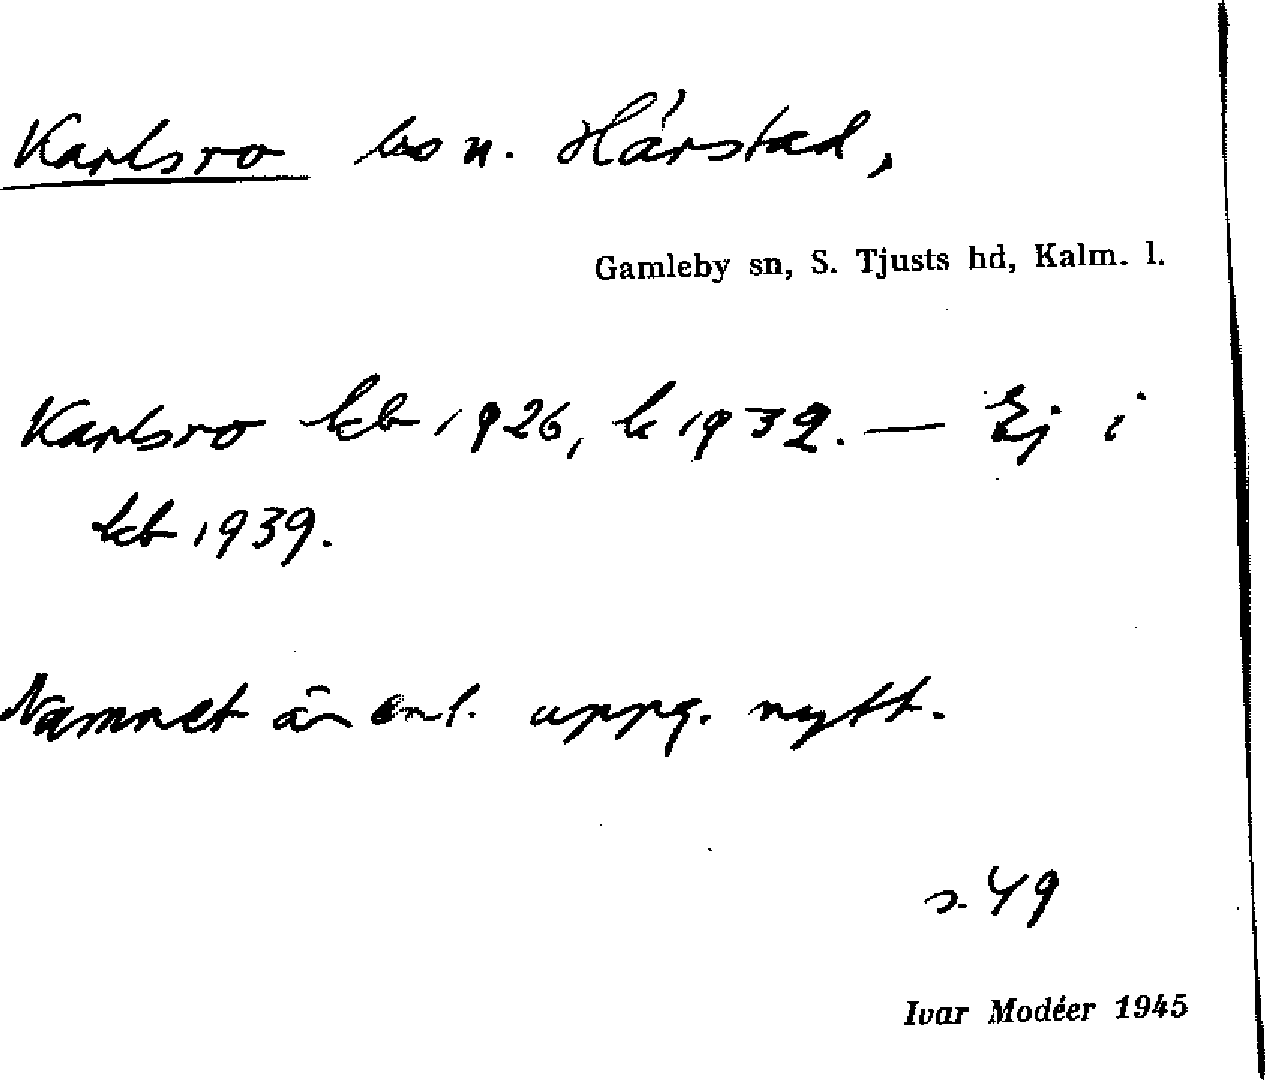 Karlsro bs n. Hårstad,
Gamleby sn, S. Tjusts hd, Kalm. l.
Karlsro kb 1926, k 1932. — Ej i
kb 1939.
Namnet är enl. uppg. nytt.
s. 49
Ivar Modéer 1945